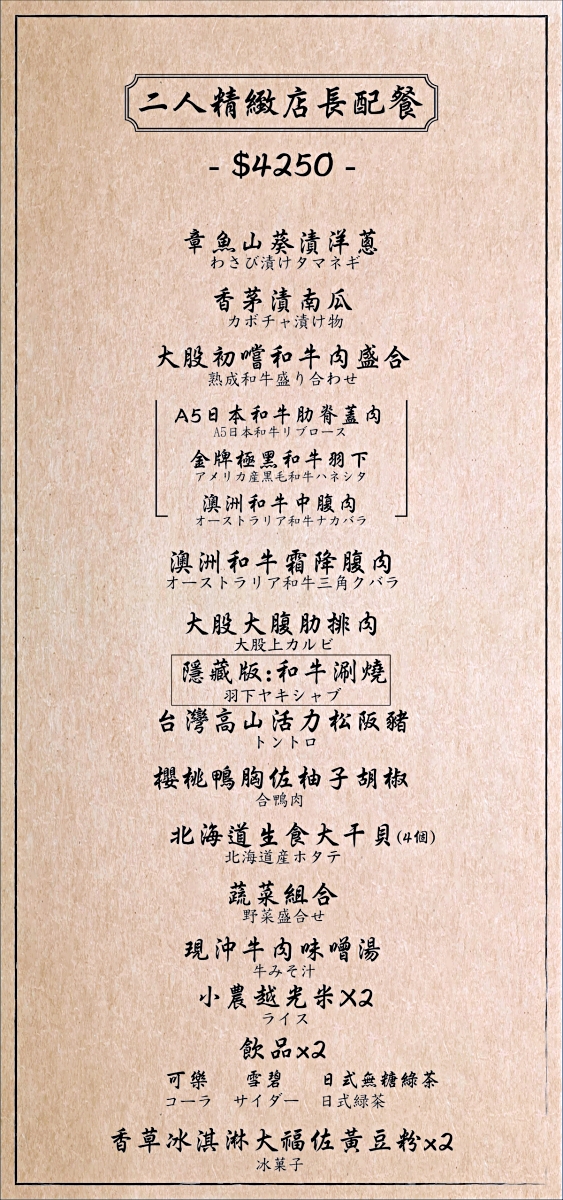 二人精緻店長配餐
- $4250 -
章魚山葵漬洋蔥
わさび漬けタマネギ
香茅漬南瓜
カボチャ漬け物
大股初嚐和牛肉盛合
熟成和牛盛り合わせ
A5日本和牛肋脊蓋肉
A5日本和牛リブロース
金牌極黑和牛羽下
アメリカ産黒毛和牛ハネシタ
澳洲和牛中腹肉
オーストラリア和牛ナカバラ
澳洲和牛霜降腹肉
オーストラリア和牛三角クバラ
大股大腹肋排肉
大股上カルビ
隱藏版:和牛涮燒
羽下ヤキシャブ
台灣高山活力松阪豬
トントロ
櫻桃鴨胸佐柚子胡椒
合鴨肉
北海道生食大干貝(4個)
北海道産ホタテ
蔬菜組合
野菜盛合せ
現沖牛肉味噌湯
牛みそ汁
小農越光米X2
ライス
飲品x2
可樂 雪碧 日式無糖綠茶
コーラ サイダー 日式緑茶
香草冰淇淋大福佐黃豆粉x2
冰菓子